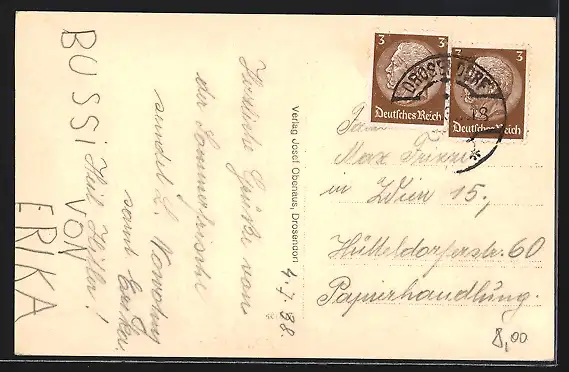 Herzliche Grüße von
der Sommerfrische
sendet L. Nowotny
samt Erika.
Heil Hitler!
4./7. 38.
BUSSI
VON
ERIKA
Verlag Josef Obenaus, Drosendorf
3 3
Deutsches Reich
3
Deutsches Reich
DROSENDORF
Max
in Wien 15.,
Hütteldorferstr. 60
Papierhandlung.
8,00